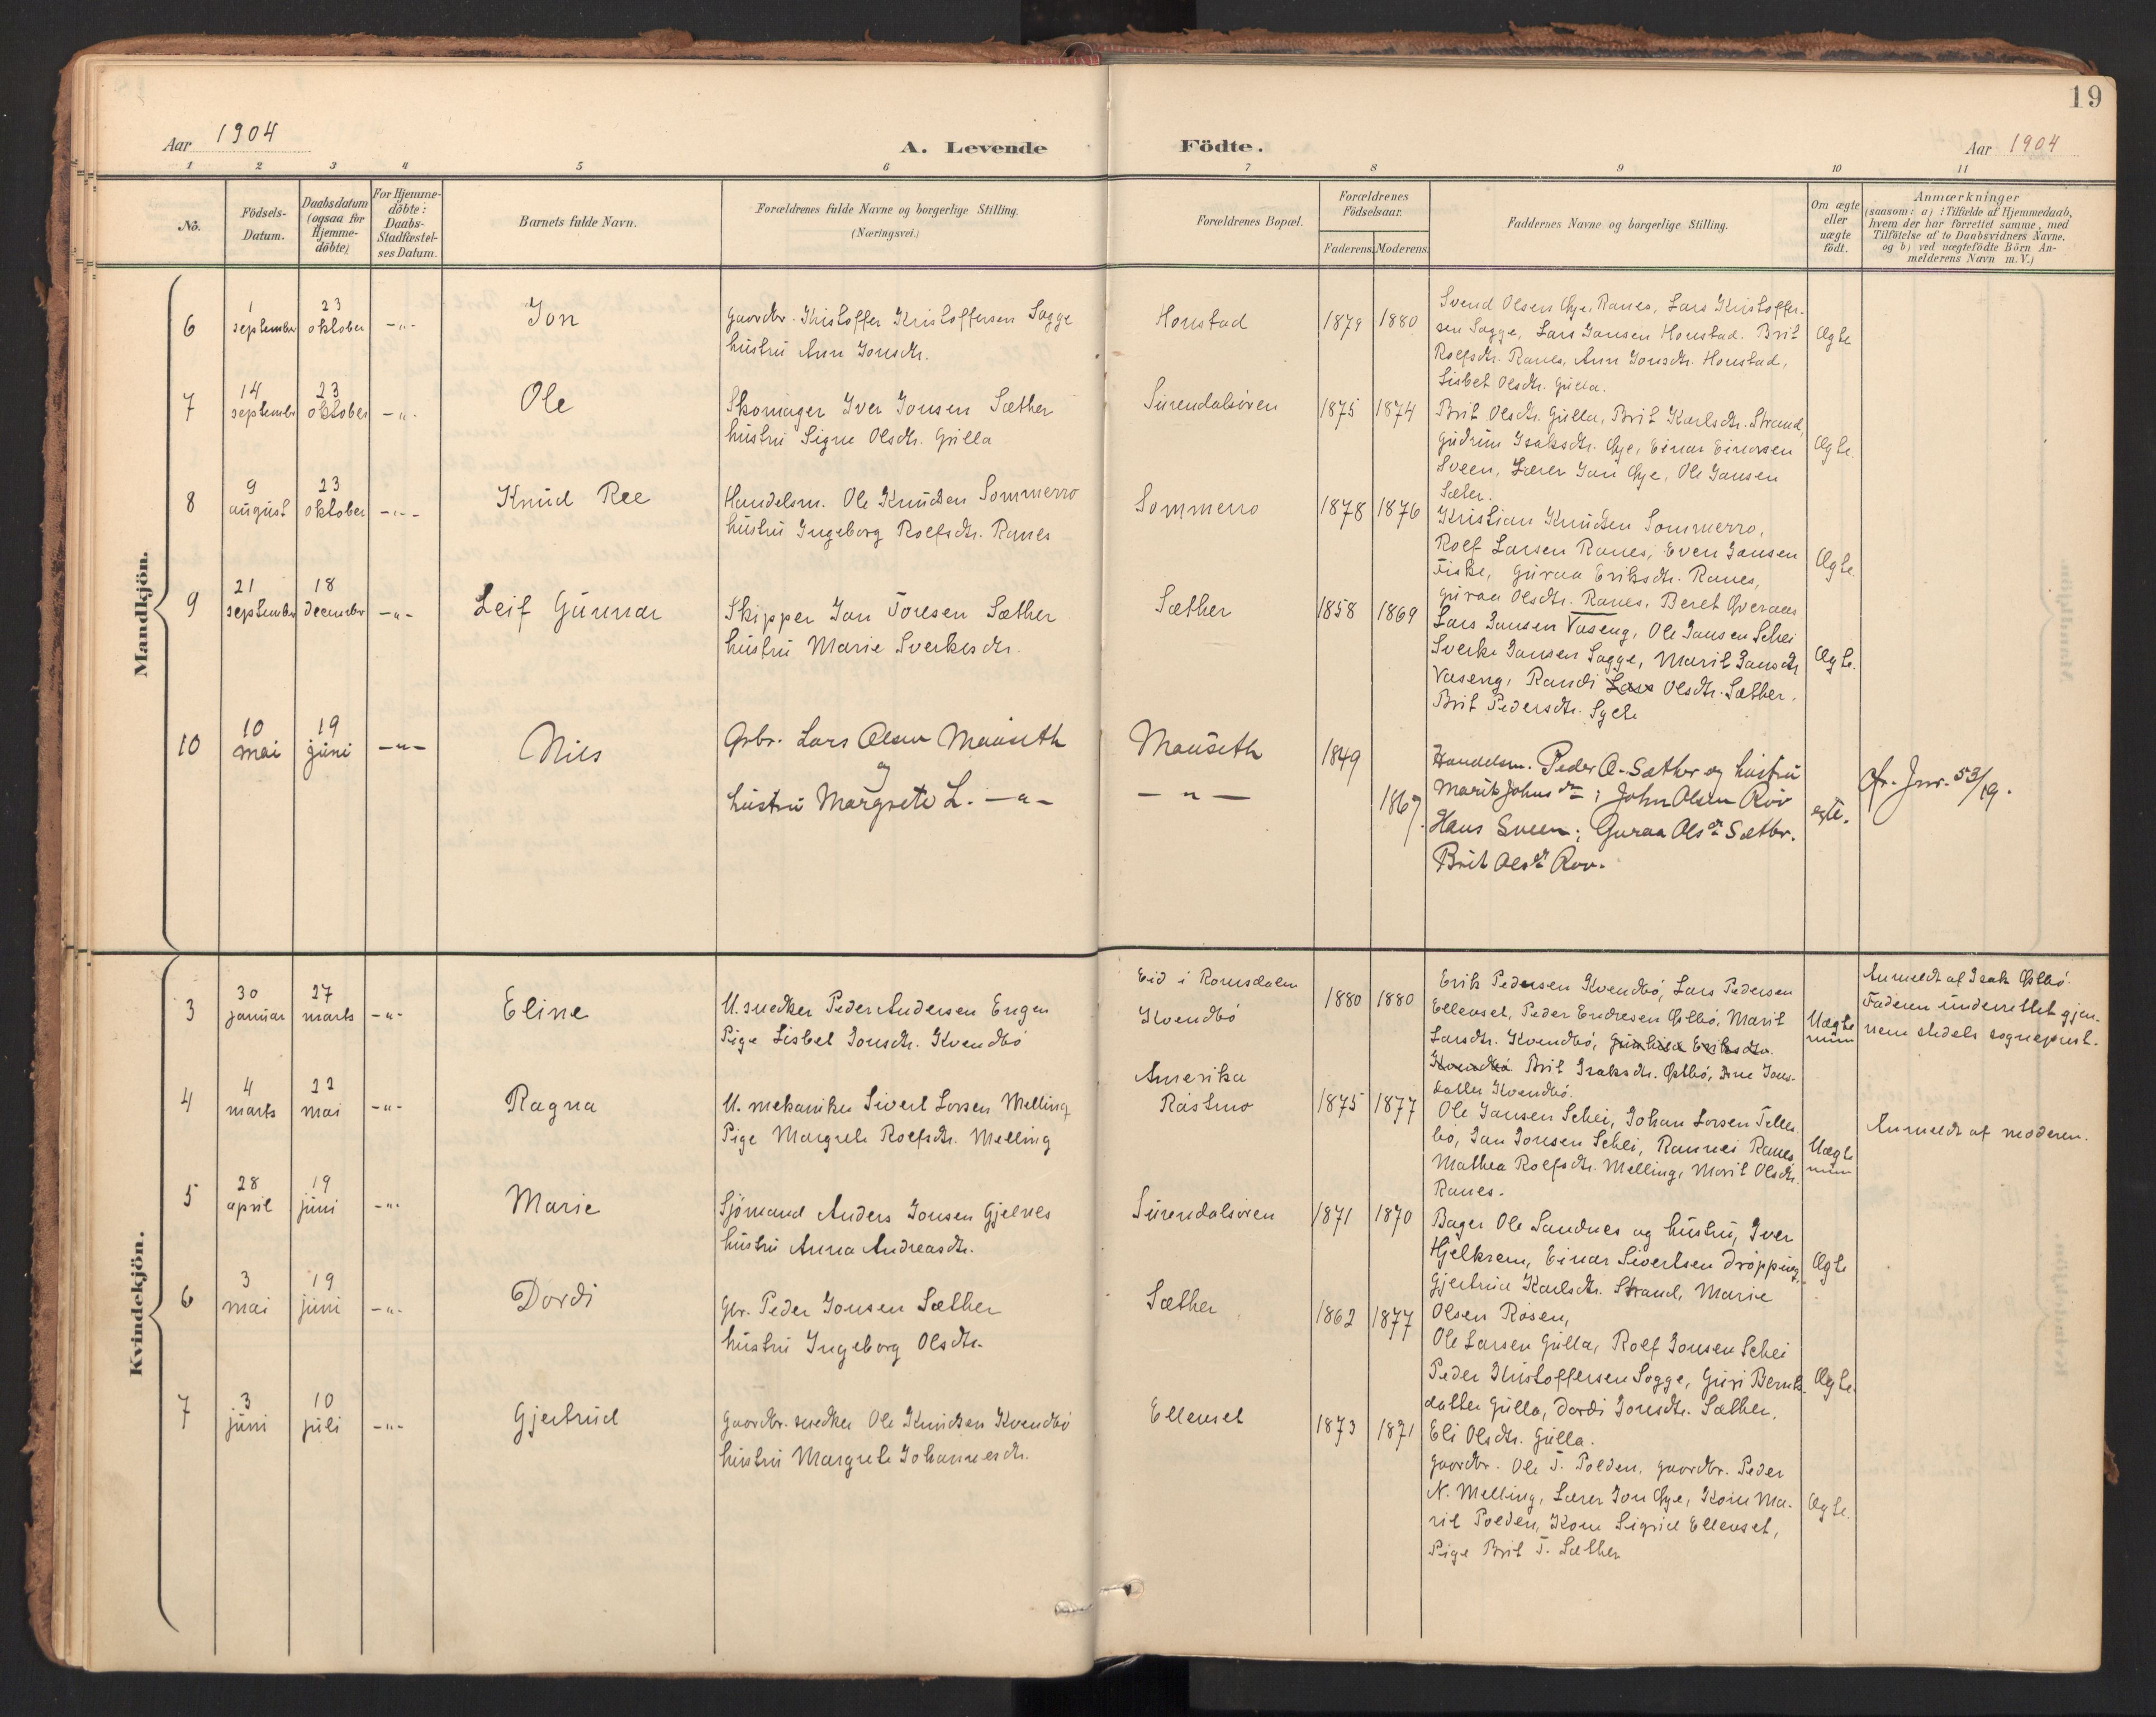 19
Aar 1904
A. Levende
Födte.
Aar 1904
1 2 3 4 5 6 7 8 9 10 11
No.
Födsels-
Datum.
Daabsdatum
(ogsaa for
Hjemme-
döbte)
For Hjemme-
döbte:
Daabs-
Stadfæstel-
ses Datum.
Barnets fulde Navn.
Forældrenes fulde Navne og borgerlige Stilling.
(Næringsvei.)
Forældrenes Bopæl.
Forældrenes
Födselsaar.
Faderens. Moderens.
Faddernes Navne og borgerlige Stilling.
Om ægte
eller
uægte
födt.
Anmærkninger
(saasom: a) : Tilfælde af Hjemmedaab,
hvem der har forrettet samme, med
Tilföielse af to Daabsvidners Navne.
og b) ved uægtefödte Börn An-
melderens Navn m.V.)
Mandkjön.
6
1
september
23
oktober
-"-
Jon
Gaardbr. Kristoffer Kristoffersen Sogge
hustru Ann Jonsdtr.
Honstad
1879 1880
Svend Olsen Øye, Ranes, Lars Kristoffer-
sen Sogge, Lars Jansen Honstad. Brit
Rolfsdtr. Ranes, Ann Jonsdtr. Honstad,
Lisbet Olsdtr. Gulla.
Ægte
7
14
september
23
oktober
-"-
Ole
Skomager Iver Jonsen Sæther
hustru Signe Olsdtr. Gulla
Surendalsøren
1875 1874
Brit Olsdtr. Gulla, Brit Karlsdtr. Strand,
Gudrun Isaksdtr. Øye, Einar Einarsen
Sveen, Lærer Jon Øye, Ole Jansen
Sæter.
Ægte.
8
9
august
23
oktober
-"-
Knud Ree
Handelsm. Ole Knudsen Sommerro
hustru Ingeborg Rolfsdtr. Ranes
Sommerro
1878 1876
Kristian Knudsen Sommerro,
Rolf Larsen Ranes, Even Jansen
Fiske, Guraa Eriksdtr. Ranes,
Guraa Olsdtr. Ranes, Beret
Ægte.
9
21
september
18
december
-"-
Leif Gunnar
Skipper Jon Toresen Sæther
hustru Marie Sverkesdtr.
Sæther
1858 1869
Lars Jansen Vaseng, Ole Jansen Schei
Sverke Jansen Sogge, Marit Jansdtr
Vaseng, Randi Lars Olsdtr. Sæther,
Brit Pedersdtr. Sylte
Ægte.
10
10
mai
19
juni
-"-
Nils
Grbr. Lars Olsen Mauseth
og
hustru Margrete L. -"-
Mauseth
-"-
1849
1867.
Handelsm. Peder O. Sæther og hustru
Marit Johnsdtr; John Olsen Røv
Hans Sveen; Guraa Olsdtr Sæthr.
Brit Olsdtr Røv.
egte.
Cfr. Jnr. 53/19.
Kvindekjön.
3
30
januar
27
marts
-"-
Eline
U. snedker Peder Andersen Engen
Pige Lisbet Jonsdtr. Kvendbø
Eid i Romsdalen
Kvendbø
1880 1880
Erik Pedersen Kvendbø, Lars Pedersen
Ellevset, Peder Endresen Østbø, Marit
Larsdtr. Kvendbø, Gunhild Eriksdtr.
Kvendbø Brit Isaksdtr. Østbø, Ane Jons-
datter Kvendbø.
Uægte
Anmeldt af Isak Østbø.
Faderen underrettet gjen-
nem stedets sogneprest.
4
4
marts
22
mai
-"-
Ragna
U. mekaniker Sivert Larsen Melling
Pige Margrete Rolfsdtr. Melling
Amerika
Røstmo
1875 1877
Ole Jansen Schei, Johan Larsen Telles
bø, Jon Jonsen Schei, Rannei Ranes
Mathea Rolfsdtr. Melling, Marit Olsdtr.
Ranes.
Uægte
Anmeldt af moderen.
5
28
april
19
juni
-"-
Marie
Sjømand Anders Jonsen Gjelnes
hustru Anna Andreasdtr.
Surendalsøren
1871 1870
Bager Ole Sandnes og hustru, Iver
Hjelksem, Einar Sivertsen Drøpping,
Gjertrud Karlsdtr. Strand, Marie
Olsen Rosen,
Ægte
6
3
mai
19
juni
-"-
Dordi
Gbr. Peder Jonsen Sæther
hustru Ingeborg Olsdtr.
Sæther
1862 1877
Ole Larsen Gulla, Rolf Jonsen Schei
Peder Kristoffersen Sogge, Guri Bernts-
datter Gulla, Dordi Jonsdtr. Sæther,
Eli Olsdtr. Gulla.
Ægte.
7
3
juni
10
juli
-"-
Gjertrud
Gaardbr. snedker Ole Knudsen Kvendbø
hustru Margrete Johannesdtr.
Ellevset
1873 1871
Gaardbr. Ole T. Polden, gaardbr. Peder
N. Melling, Lærer Jon Øye, Kone Ma-
rit Polden, Kone Sigrid Ellevset,
Pige Brit T. Sæther
Ægte.